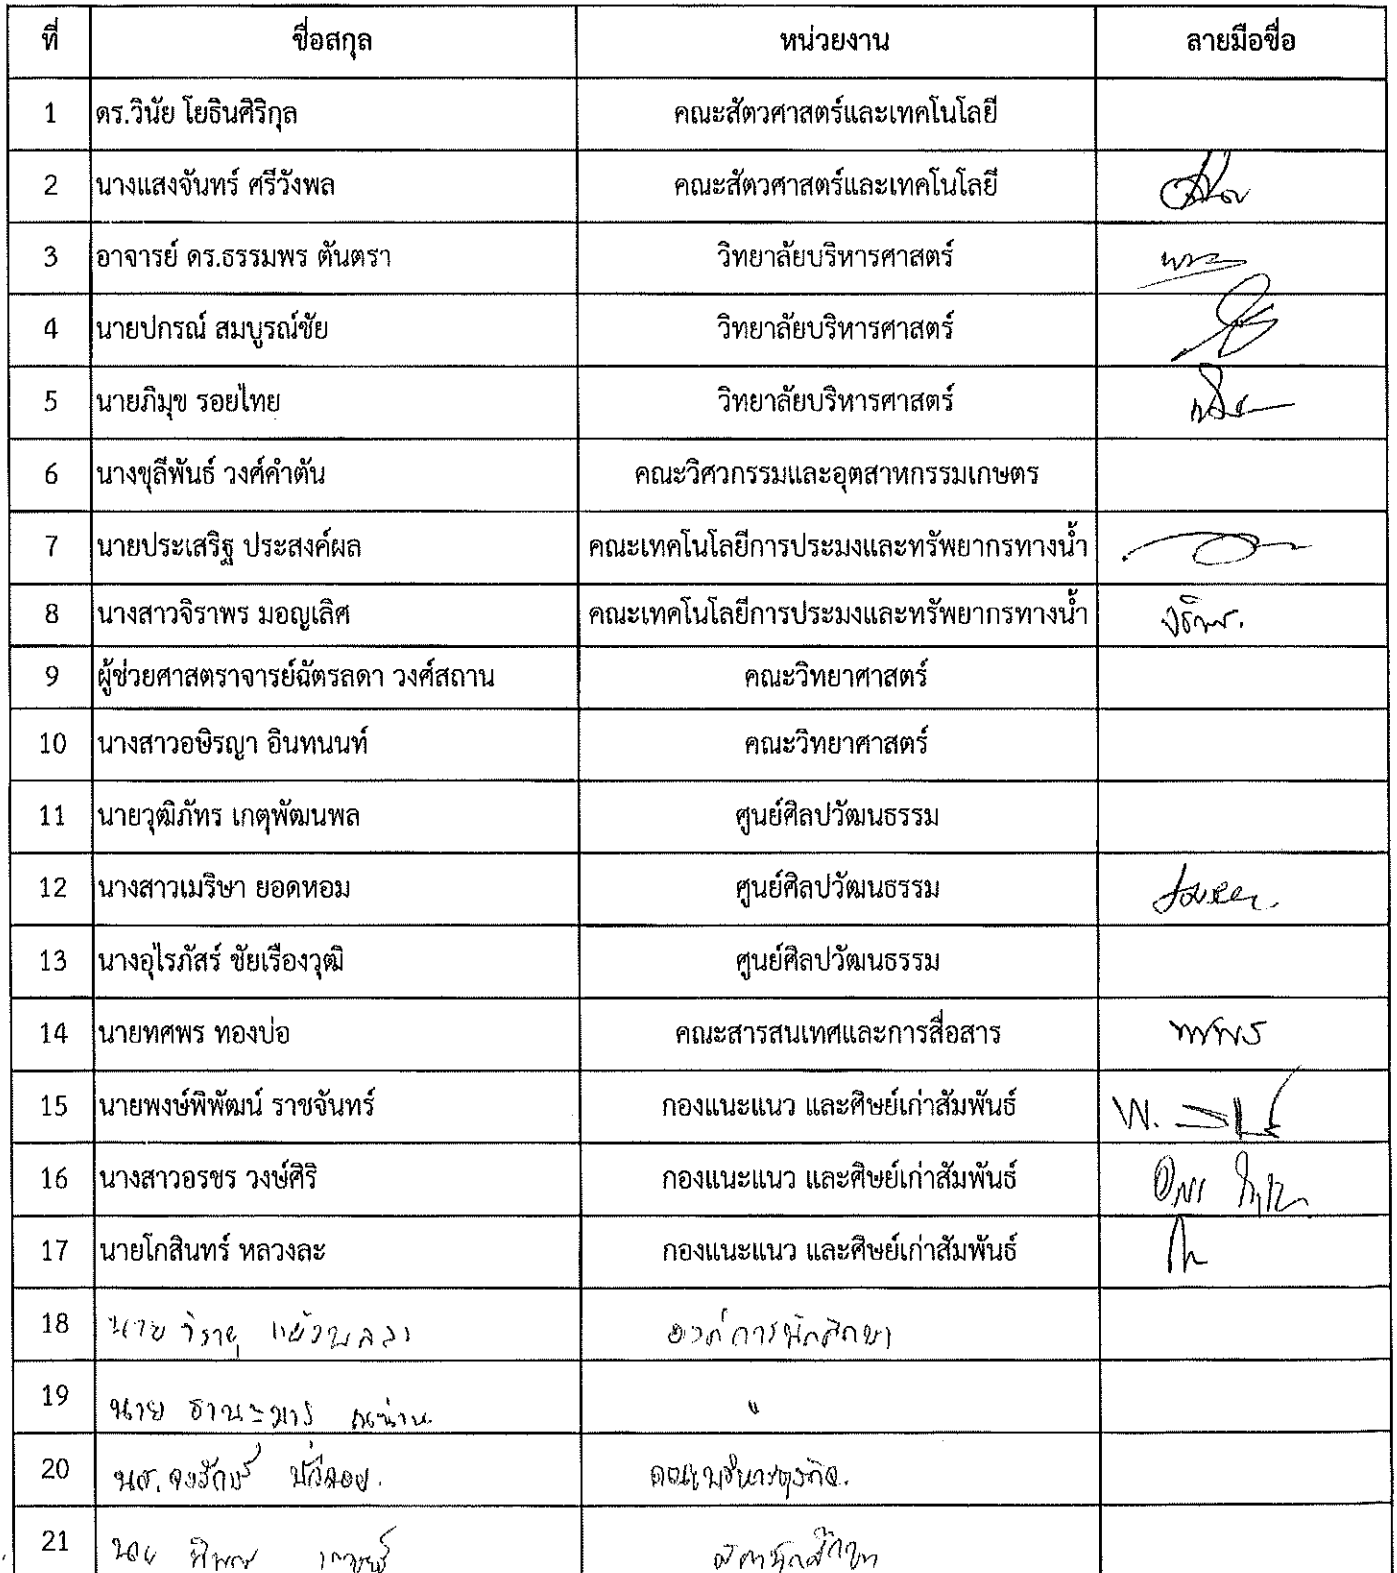 ที่ ชื่อสกุล หน่วยงาน ลายมือชื่อ
1 ดร.วินัย โยธินศิริกุล คณะสัตวศาสตร์และเทคโนโลยี
2 นางแสงจันทร์ ศรีวังพล คณะสัตวศาสตร์และเทคโนโลยี
3 อาจารย์ ดร.ธรรมพร ตันตรา วิทยาลัยบริหารศาสตร์
4 นายปกรณ์ สมบูรณ์ชัย วิทยาลัยบริหารศาสตร์
5 นายภิมุข รอยไทย วิทยาลัยบริหารศาสตร์
6 นางชุลีพันธ์ วงศ์คำตัน คณะวิศวกรรมและอุตสาหกรรมเกษตร
7 นายประเสริฐ ประสงค์ผล คณะเทคโนโลยีการประมงและทรัพยากรทางน้ำ
8 นางสาวจิราพร มอญเลิศ คณะเทคโนโลยีการประมงและทรัพยากรทางน้ำ
9 ผู้ช่วยศาสตราจารย์ฉัตรลดา วงศ์สถาน คณะวิทยาศาสตร์
10 นางสาวอษิรญา อินทนนท์ คณะวิทยาศาสตร์
11 นายวุฒิภัทร เกตุพัฒนพล ศูนย์ศิลปวัฒนธรรม
12 นางสาวเมริษา ยอดหอม ศูนย์ศิลปวัฒนธรรม
13 นางอุไรภัสร์ ชัยเรืองวุฒิ ศูนย์ศิลปวัฒนธรรม
14 นายทศพร ทองบ่อ คณะสารสนเทศและการสื่อสาร ทศพร
15 นายพงษ์พิพัฒน์ ราชจันทร์ กองแนะแนว และศิษย์เก่าสัมพันธ์
16 นางสาวอรชร วงษ์ศิริ กองแนะแนว และศิษย์เก่าสัมพันธ์
17 นายโกสินทร์ หลวงละ กองแนะแนว และศิษย์เก่าสัมพันธ์
18 นาย องค์การนักศึกษา
19 นาย "
20 นส. จงรักษ์ คณะบริหารธุรกิจ.
21 นาย สภานักศึกษา